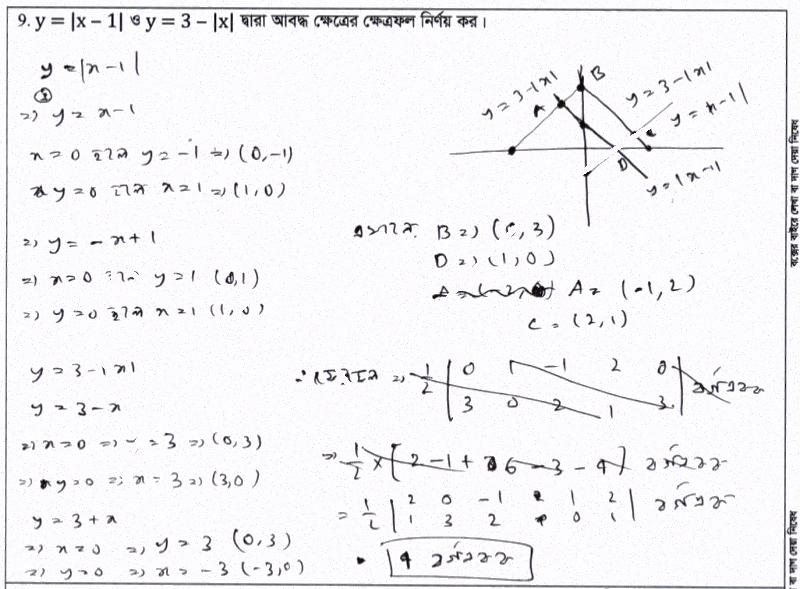 9. y = |x – 1| ও y = 3 – |x| দ্বারা আবদ্ধ ক্ষেত্রের ক্ষেত্রফল নির্ণয় কর।
y = |x – 1|
=> y = x – 1
x = 0 হলে y = –1 => (0, –1)
y = 0 হলে x = 1 => (1, 0)
=> y = – x + 1
=> x = 0 হলে y = 1 (0,1)
=> y = 0 হলে x = 1 (1, 0)
y = 3 – |x|
y = 3 – x
=> x = 0 => y = 3 => (0, 3)
=> y = 0 => x = 3 => (3,0)
y = 3 + x
=> x = 0 => y = 3 (0,3)
=> y = 0 => x = –3 (–3,0)
y = 3 – |x|
A
B
y = 3 – |x|
C
y = x – 1|
D
y = |x – 1
B => (0, 3)
D => (1, 0)
A = (–1, 2)
C = (2, 1)
=> 1/2 | 0 1 –1 2 0 |
3 0 2 1 3
=> 1/2 × [2 – 1 + 6 – 3 – 4] বর্গএকক
= 1/2 | 2 0 –1 1 2 | বর্গএকক
1 3 2 0 1
4 বর্গএকক
বক্সের বাইরে লেখা বা দাগ দেয়া নিষেধ
বা দাগ দেয়া নিষেধ